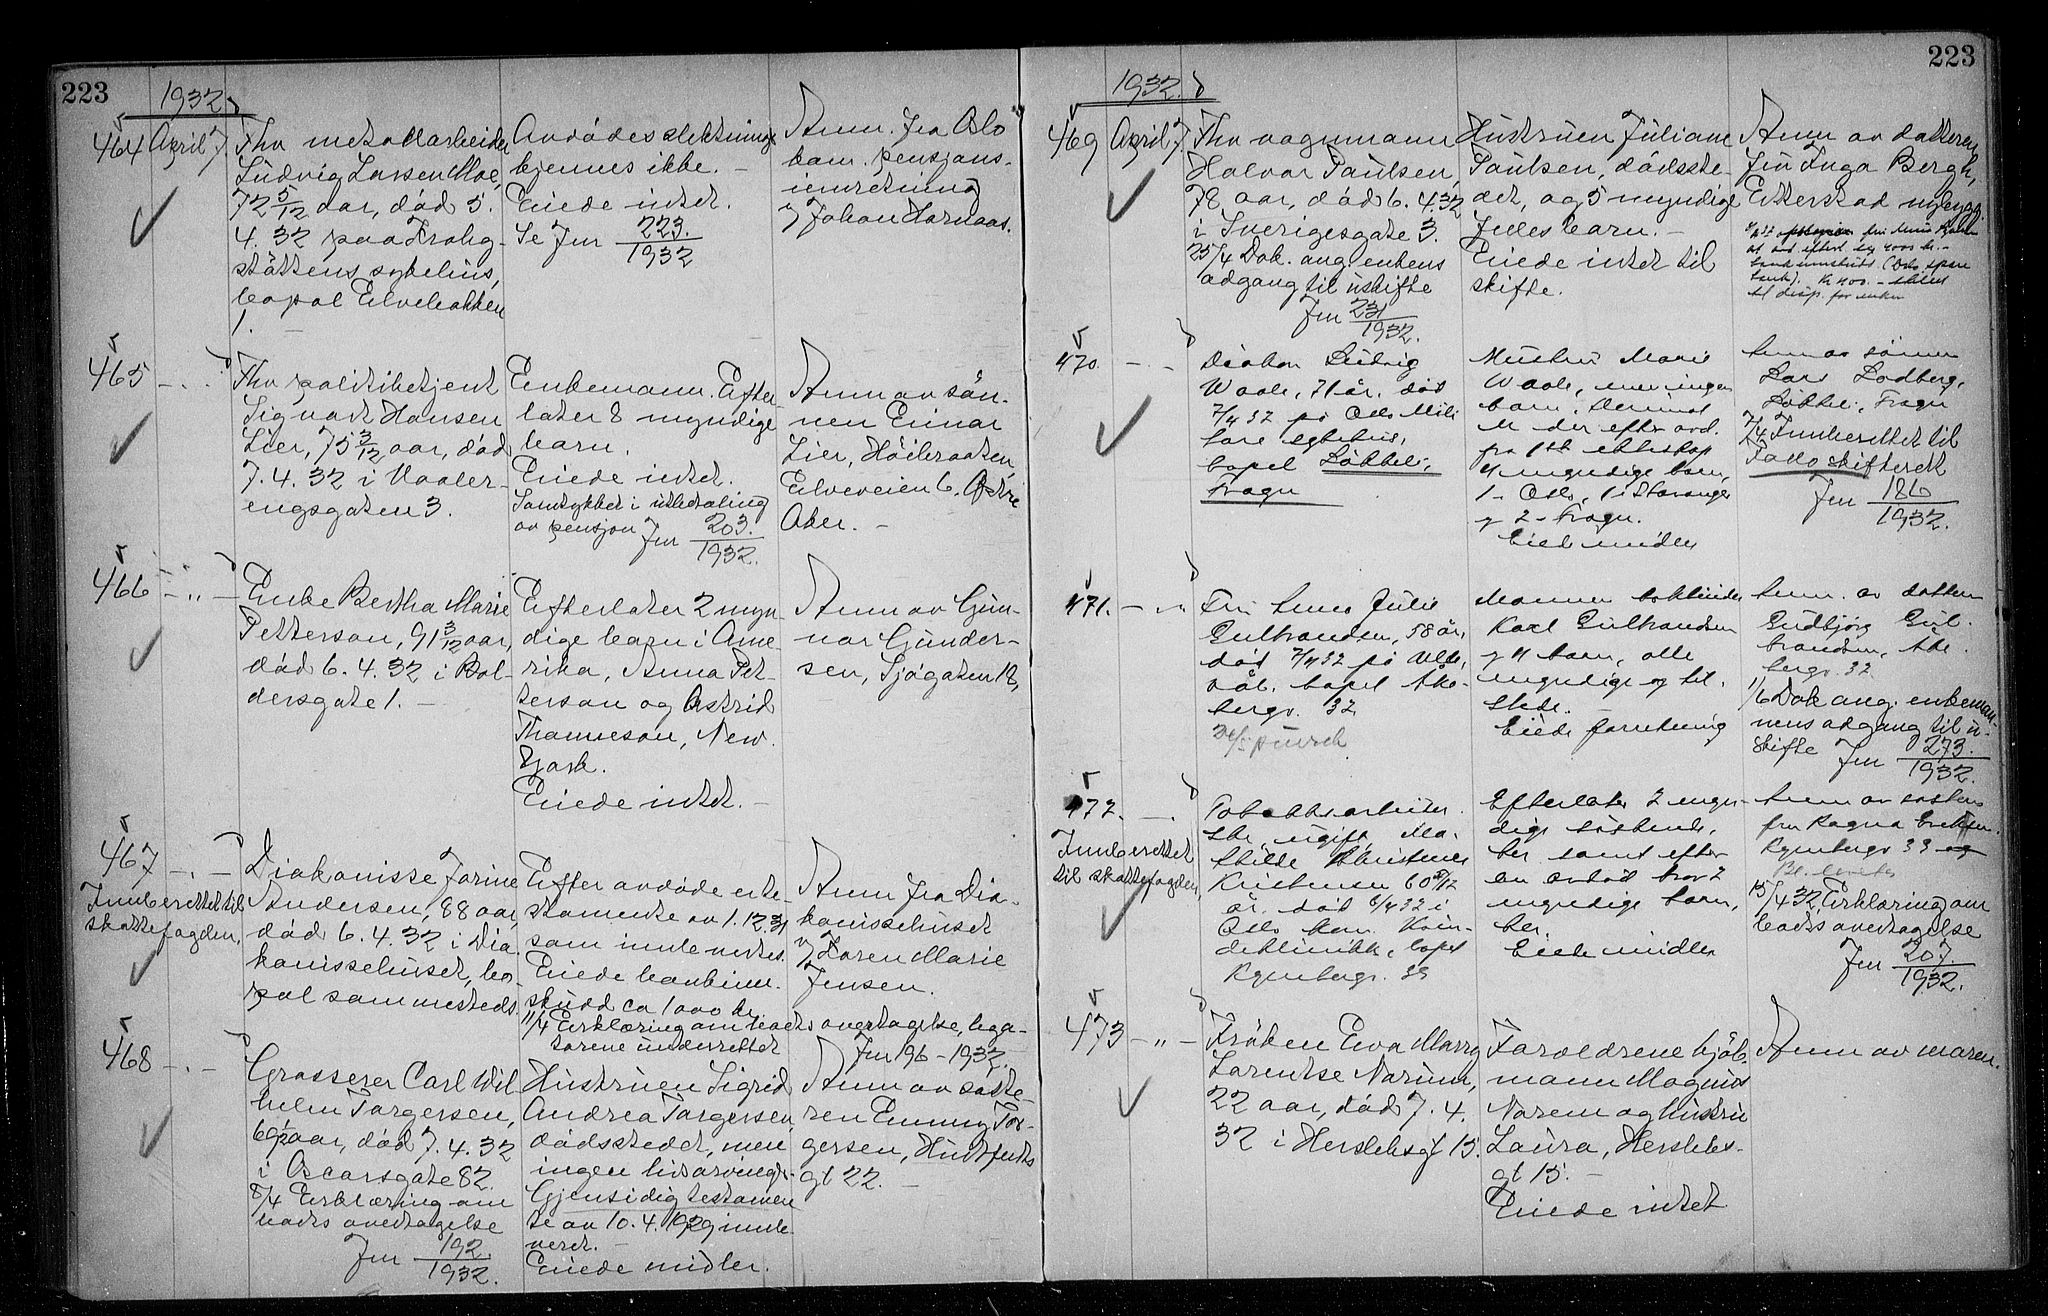 223
1932
464 April 7.
Fhv metallarbeider
Ludvig Larsen Moe,
72 5/12 aar, död 5.
4. 32 paa Krohg-
støttens sykehus,
bopal Elvebakken
1. —
Avdödes slektninge
kjennes ikke. —
Eiede intet.
Se Jnr 223/1932
Anm. fra Oslo
kom. pensjons-
innretning
v/ Johan Hornaas.
465 — " —
Fhv politibetjent
Sigvart Hansen
Lier, 75 3/12 aar, död
7. 4. 32 i Vaaler-
engsgaten 3.
Enkemann. Efter-
later 8 myndige
barn.
Eiede intet.
Samtykket i utbetaling
av pensjon Jnr 203/1932.
Anm av søn-
nen Einar
Lier, Höibraaten,
Elveveien 6. Østre
Aker. —
466 — " —
Enke Bertha Marie
Petterson, 91 3/12 aar,
död 6. 4. 32 i Bal-
dersgate 1. —
Efterlater 2 myn-
dige barn i Ame-
rika, Anna Pet-
terson og Astrid
Thomeson, New
York.
Eiede intet. —
Anm av Gun-
nar Gunder-
sen, Sjögaten 18,
467 — " —
Innberettet til
skattefogden.
Diakonisse Jorine
Andersen, 88 aar,
död 6. 4. 32 i Dia
konissehuset, bo
pal sammesteds.
Efter avdöde ert e-
stamente av 1. 12. 31
som innleveres.
Eiede bankinn-
skudd ca 1000 kr.
11/4 Erklæring om boets overtagelse, lega-
tarene underrettet Jnr 196 - 1932
Anm fra Dia-
konissehuset
v/ Karen Marie
Jensen.
468 — " —
Grosserer Carl Wil
helm Torgersen,
aar, död 7. 4. 32
i Oscarsgate 82.
8/4 Erklæring om
boets overtagelse
Jnr 192/1932.
Hustruen Sigrid
Andrea Torgersen,
dödsstedet, men
ingen livsarvinger.
Gjensidig testamen
te av 10. 4. 1929 innle
veret. —
Eiede midler.
Anm av søste-
ren Emmy Tor-
gersen, Huitfeldts
gt 22. —
223
1932.
469 April 7
Fhv vognmann
Halvor Paulsen,
78 aar, död 6. 4. 32
i Sverigesgate 3.
25/4 Dok. ang. enkens
adgang til uskifte
Jnr 231/1932.
Hustruen Juliane
Paulsen, dödsste-
det, og 5 myndige
felles barn. —
Eiede intet til
skifte.
Anm av datteren
fru Inga Bergh,
Etterstad
Kr 400. –
til disp. for enken
470. — " —
Diakon Ludvig
Waale, 71 år. död
7/4 32 på Oslo Mili
tære sykehus,
bopel Løkkeli,
Frogn
Hustru Marie
Waale, men ingen
barn. Derimot
er der efter avd.
fra 1ste ekteskap
4 myndige barn,
1 - Oslo, 1 i Stavanger
og 2 - Frogn.
Eiede midler
Anm av sønnen
Lars Lodberg,
Løkkeli, Frogn
7/4 Innberettet til
Follo skifterett
Jnr 186/1932.
471. — " —
Fru Anna Julie
Gulbrandsen, 58 år,
död 7/4 32 på Ullev.
bopel Åke-
bergv. 32
Mannen
Karl Gulbrandsen
og 4 barn, alle
myndige og til
stede.
Eiede forretning
Anm. av datteren
Gudbjørg Gul-
brandsen, Åke-
bergv. 32.
1/6 Dok ang. enkeman
nens adgang til u-
skifte Jnr 273/1932.
472. — " —
Innberettet
til skattefogden,
Tobakksarbeider
ske, ugift, Ma-
thilde Christense
Kristensen 60 8/12
år. död 6/4 32 i
Oslo kom. Kvin-
deklinikk, bopel
Ryenbergv. 33
Efterlater 2 myn-
dige søskende,
her samt efter
en avdöd bror 2
myndige barn,
her.
Eiede midler
Anm av søsteren
fru Ragna Eriksen
Ryenbergv 33
15/4 32 Erklæring om
boets overtagelse
Jnr 207/1932.
473 — " —
Fröken Eva Marry
Lorentse Norum,
22 aar, död 7. 4.
32 i Herslebsgt 15.
Foreldrene kjöb-
mann Magnus
Norem og hustru
Laura, Herslebs-
gt 15. —
Eiede intet
Anm av moren.